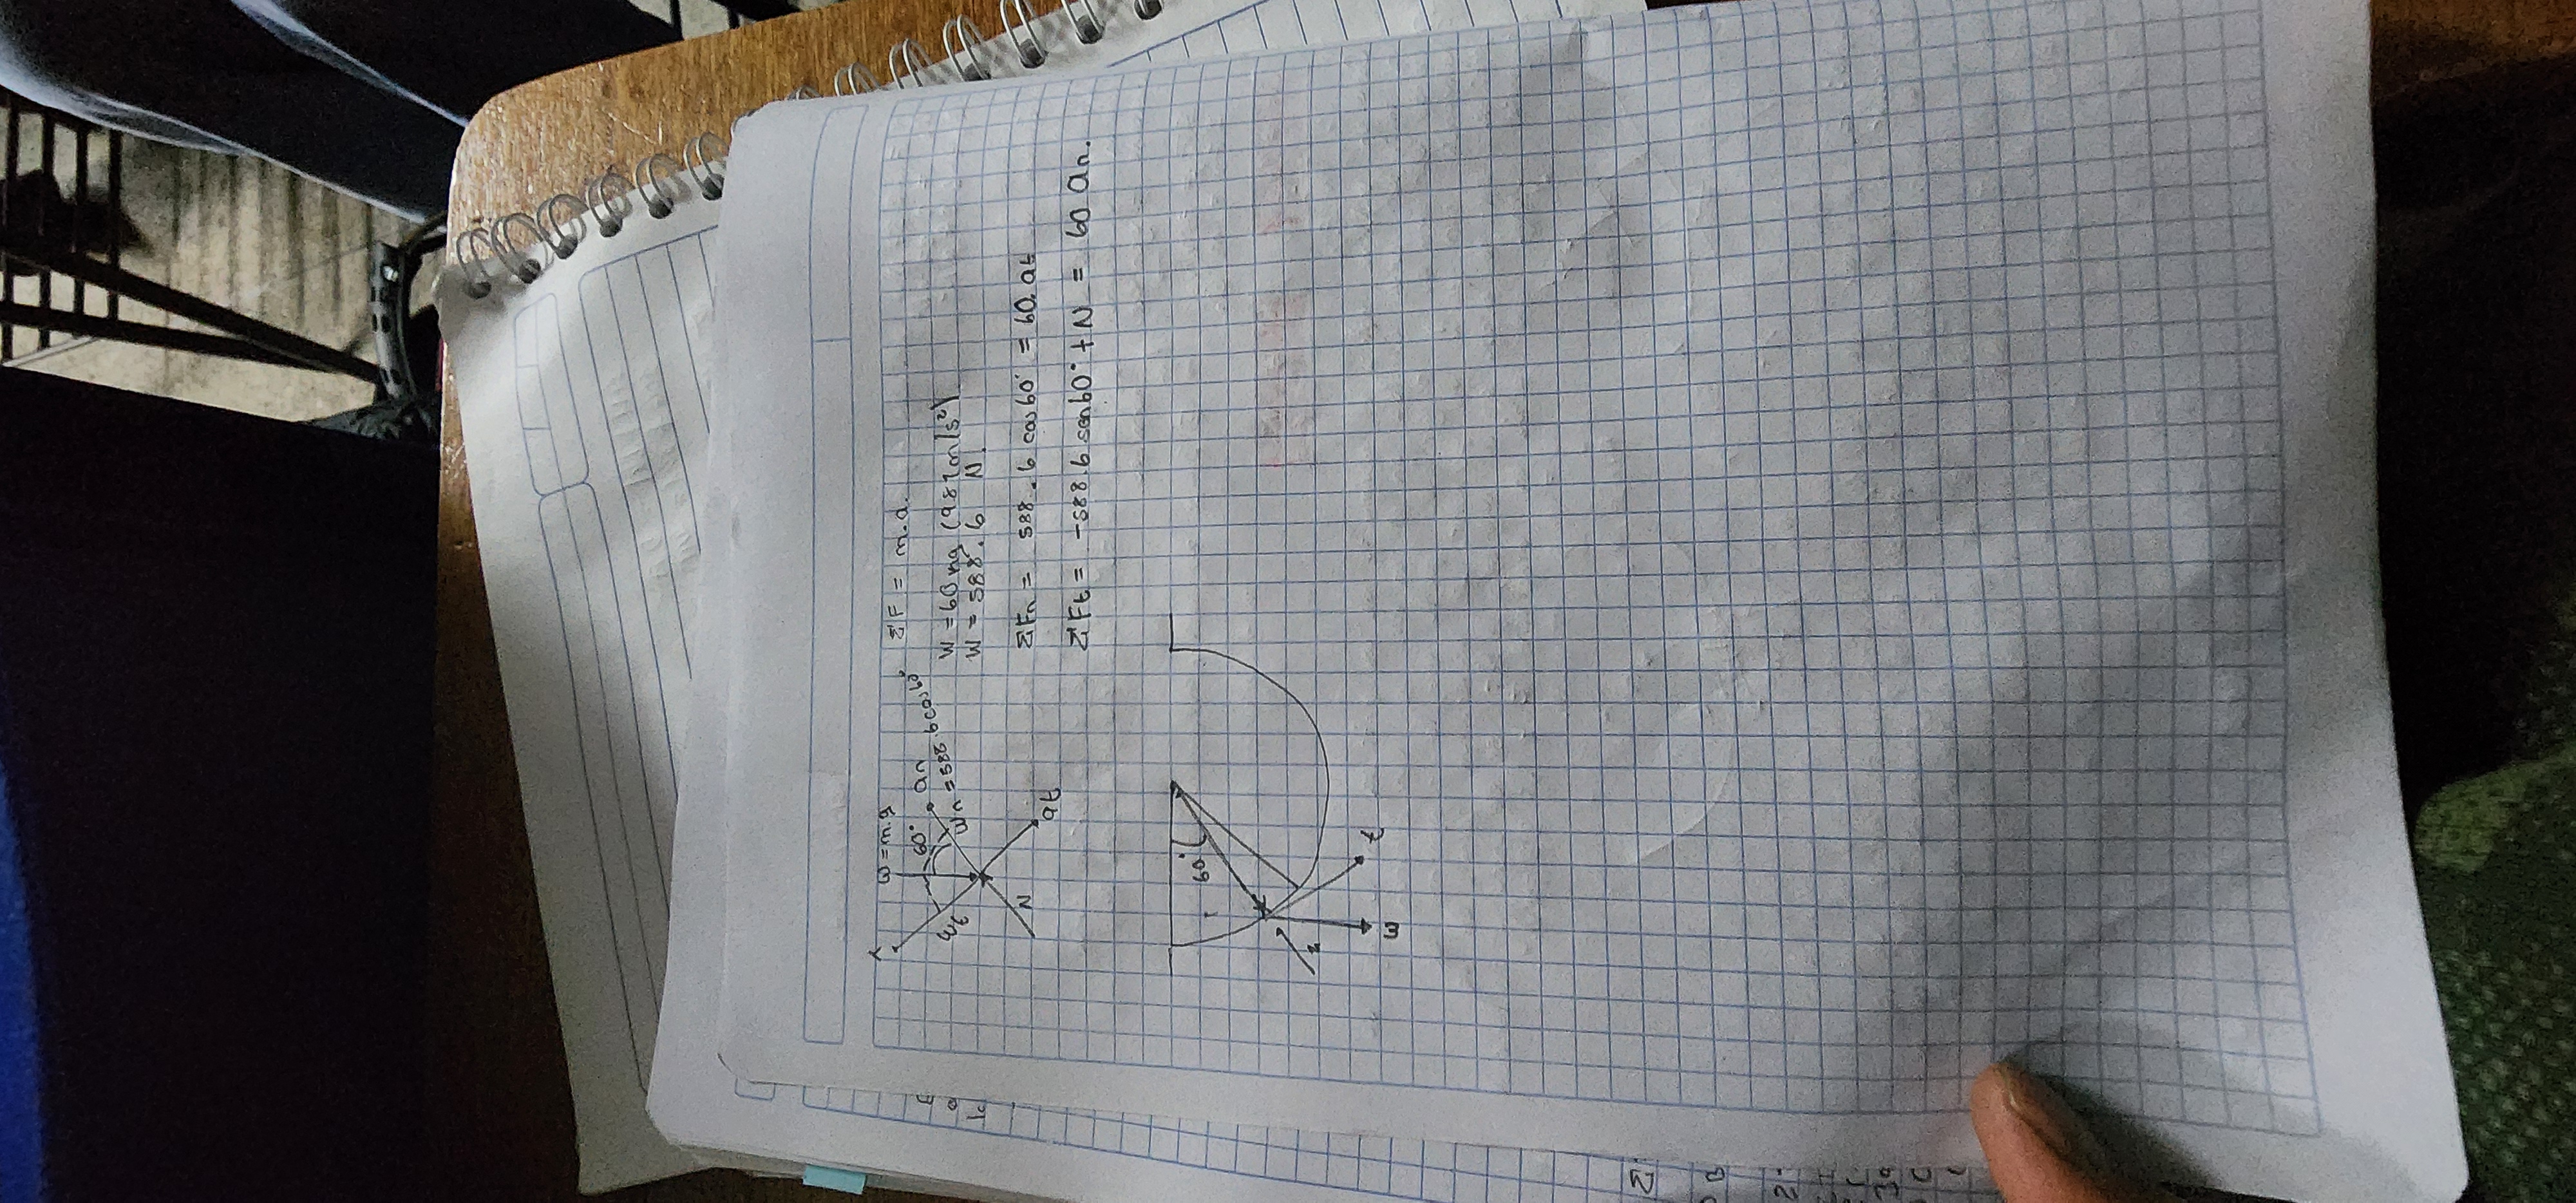 W = m.g
60°
an
Wn = 588.6 cos 60°
Wt
N
at
ΣF = m.a.
W = 60 kg (9.81 m/s²)
W = 588.6 N.
ΣFn = 588.6 cos 60° = 60. at
ΣFt = -588.6 sen 60° + N = 60 an.
60°
t
W